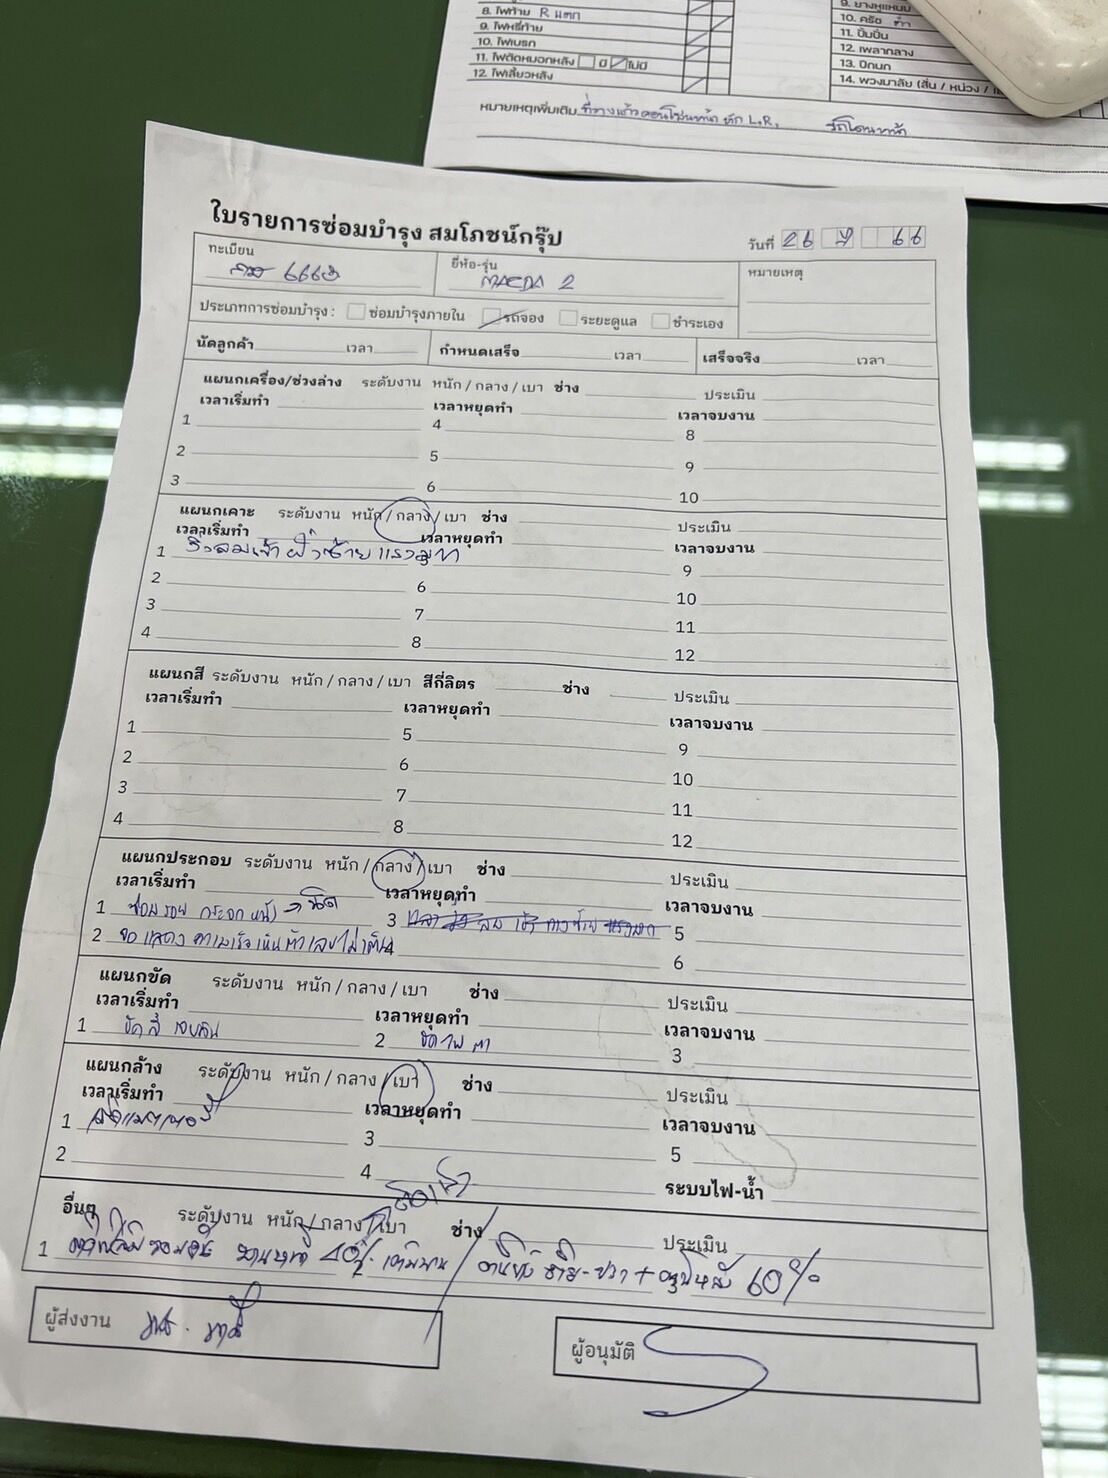 8. ไฟท้าย R แตก
9. ไฟหรี่ท้าย
10. ไฟเบรก
11. ไฟตัดหมอกหลัง มี ไม่มี
12. ไฟเลี้ยวหลัง
9. ยางหูแหนบ
10. ครัช
11. ปั๊มปั่น
12. เพลากลาง
13. ปีกนก
14. พวงมาลัย (สั่น / หน่วง /
หมายเหตุเพิ่มเติม ที่วางแก้วคอนโซนหน้า หัก L,R,
ใบรายการซ่อมบำรุง สมโภชน์กรุ๊ป
วันที่ 26 66
ทะเบียน
ยี่ห้อ-รุ่น MAZDA 2
หมายเหตุ
ประเภทการซ่อมบำรุง : ซ่อมบำรุงภายใน รถจอง ระยะดูแล ชำระเอง
นัดลูกค้า เวลา กำหนดเสร็จ เวลา เสร็จจริง เวลา
แผนกเครื่อง/ช่วงล่าง ระดับงาน หนัก / กลาง / เบา ช่าง ประเมิน
เวลาเริ่มทำ เวลาหยุดทำ เวลาจบงาน
1 4 8
2 5 9
3 6 10
แผนกเคาะ ระดับงาน หนัก / กลาง / เบา ช่าง ประเมิน
เวลาเริ่มทำ เวลาหยุดทำ เวลาจบงาน
1 ลมเข้า ฝั่งซ้าย 9
2 6 10
3 7 11
4 8 12
แผนกสี ระดับงาน หนัก / กลาง / เบา สีกี่ลิตร ช่าง ประเมิน
เวลาเริ่มทำ เวลาหยุดทำ เวลาจบงาน
1 5 9
2 6 10
3 7 11
4 8 12
แผนกประกอบ ระดับงาน หนัก / กลาง / เบา ช่าง ประเมิน
เวลาเริ่มทำ เวลาหยุดทำ เวลาจบงาน
1 ซ่อมรอย กระจกหน้า 3 5
2 จอแสดงความเร็วเดินตัวเลขไม่เต็ม 4 6
แผนกขัด ระดับงาน หนัก / กลาง / เบา ช่าง ประเมิน
เวลาเริ่มทำ เวลาหยุดทำ เวลาจบงาน
1 ขัดสี 2 ขัดไฟ ตา 3
แผนกล้าง ระดับงาน หนัก / กลาง / เบา ช่าง ประเมิน
เวลาเริ่มทำ เวลาหยุดทำ เวลาจบงาน
1 3 5
2 4 ระบบไฟ-น้ำ
อื่นๆ ระดับงาน หนัก / กลาง / เบา ช่าง ประเมิน
1 40% 60%
ผู้ส่งงาน
ผู้อนุมัติ